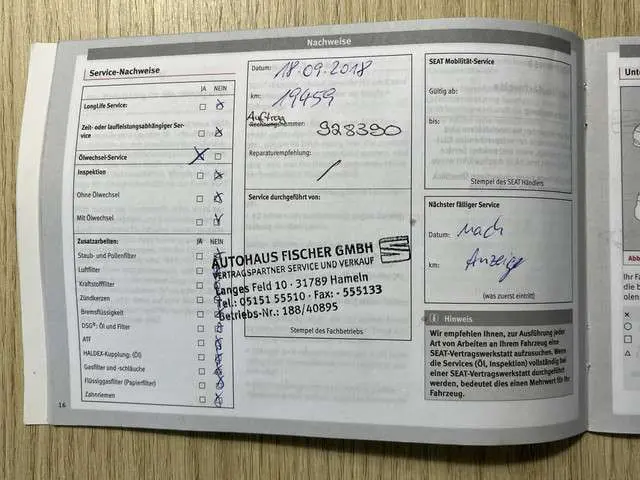 Nachweise
Service-Nachweise
JA NEIN
LongLife Service:
Zeit- oder laufleistungsabhängiger Ser-
vice
Ölwechsel-Service
Inspektion
Ohne Ölwechsel
Mit Ölwechsel
Zusatzarbeiten: JA NEIN
Staub- und Pollenfilter
Luftfilter
Kraftstofffilter
Zündkerzen
Bremsflüssigkeit
DSG®: Öl und Filter
ATF
HALDEX-Kupplung: (Öl)
Gasfilter und -schläuche
Flüssiggasfilter (Papierfilter)
Zahnriemen
16
Datum: 18.09.2018
km: 19459
Auftrag
Rechnungsnummer: 928390
Reparaturempfehlung: /
Service durchgeführt von:
AUTOHAUS FISCHER GMBH
VERTRAGSPARTNER SERVICE UND VERKAUF
Langes Feld 10 · 31789 Hameln
Tel.: 05151 55510 · Fax: - 555133
Betriebs-Nr.: 188/40895
Stempel des Fachbetriebs
SEAT Mobilität-Service
Gültig ab:
bis:
Stempel des SEAT Händlers
Nächster fälliger Service
Datum: nach
km: Anzeige
(was zuerst eintritt)
Hinweis
Wir empfehlen Ihnen, zur Ausführung jeder
Art von Arbeiten an Ihrem Fahrzeug eine
SEAT-Vertragswerkstatt aufzusuchen. Wenn
die Services (Öl, Inspektion) vollständig bei
einer SEAT-Vertragswerkstatt durchgeführt
werden, bedeutet dies einen Mehrwert für Ihr
Fahrzeug.
Unte
Abb
Ihr Fa
die b
eines